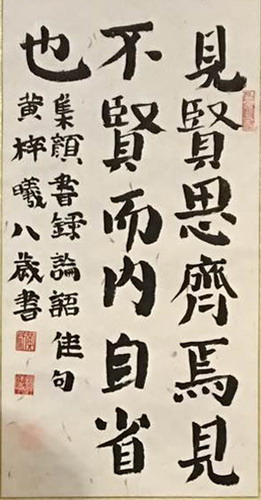 見賢思齊焉見
不賢而内自省
也
集顏書錄論語佳句
黄梓曦八歲書